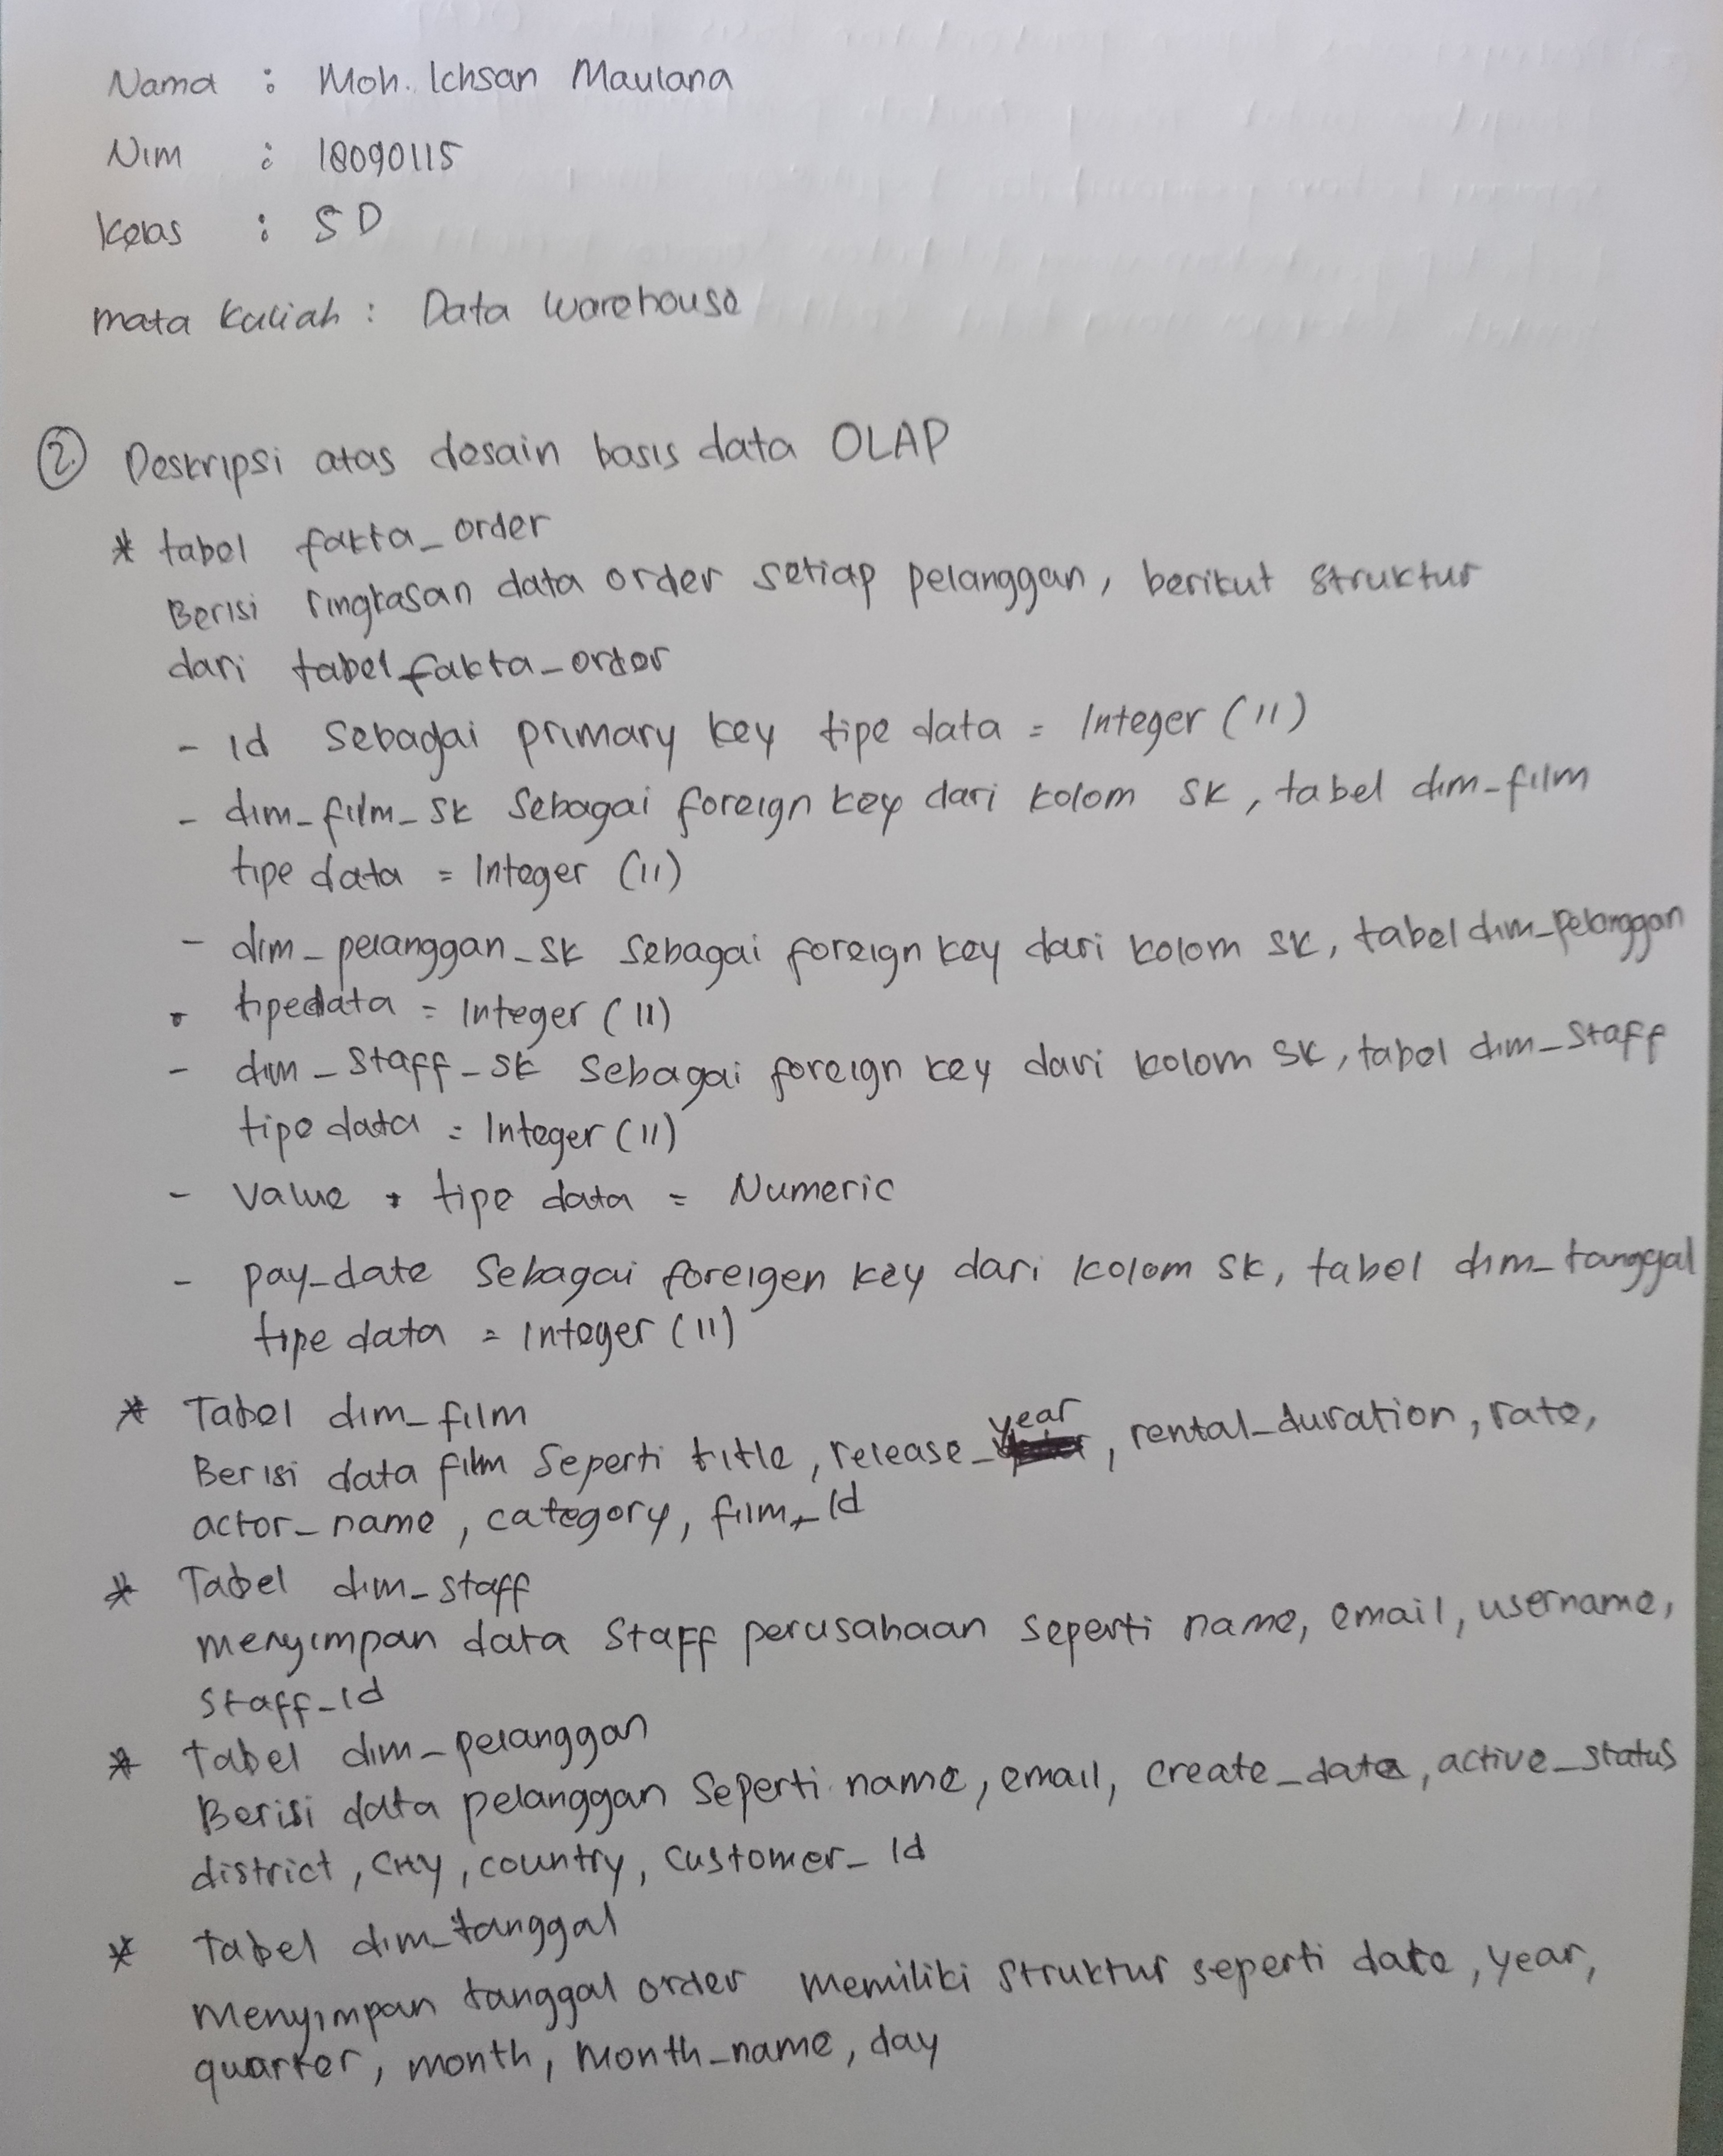 Nama : Moh. Ichsan Maulana
Nim : 18090115
Kelas : 5D
mata kuliah : Data Warehouse
2. Deskripsi atas desain basis data OLAP
* tabel fakta_order
Berisi ringkasan data order setiap pelanggan, berikut struktur
dari tabel fakta_order
- id sebagai primary key tipe data = Integer (11)
- dim_film_sk sebagai foreign key dari kolom sk, tabel dim_film
tipe data = Integer (11)
- dim_pelanggan_sk sebagai foreign key dari kolom sk, tabel dim_pelanggan
tipe data = Integer (11)
- dim_staff_sk sebagai foreign key dari kolom sk, tabel dim_staff
tipe data = Integer (11)
- value tipe data = Numeric
- pay_date sebagai foreigen key dari kolom sk, tabel dim_tanggal
tipe data = Integer (11)
* Tabel dim_film
Berisi data film seperti title, release_year, rental_duration, rate,
actor_name, category, film_id
* Tabel dim_staff
menyimpan data staff perusahaan seperti name, email, username,
staff_id
* tabel dim_pelanggan
Berisi data pelanggan seperti name, email, create_date, active_status
district, city, country, customer_id
* tabel dim_tanggal
menyimpan tanggal order memiliki struktur seperti date, year,
quarter, month, month_name, day